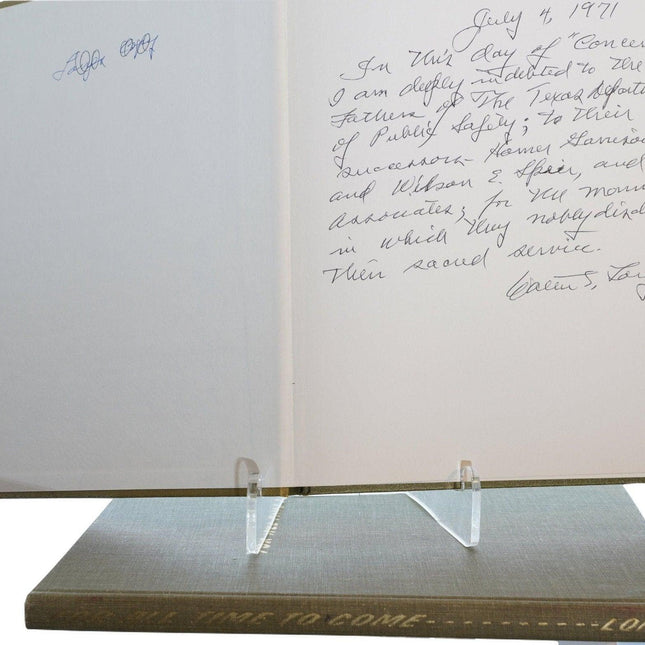 July 4, 1971
In this day of "Concer
I am deeply indebted to the
Fathers of The Texas Depart
of Public Safety; to their
successors Homer Garrison
and Wilson E. Speir, and
associates; for the mann
in which they nobly disc
their sacred service.
S. Lon
ALL TIME TO COME----------LON